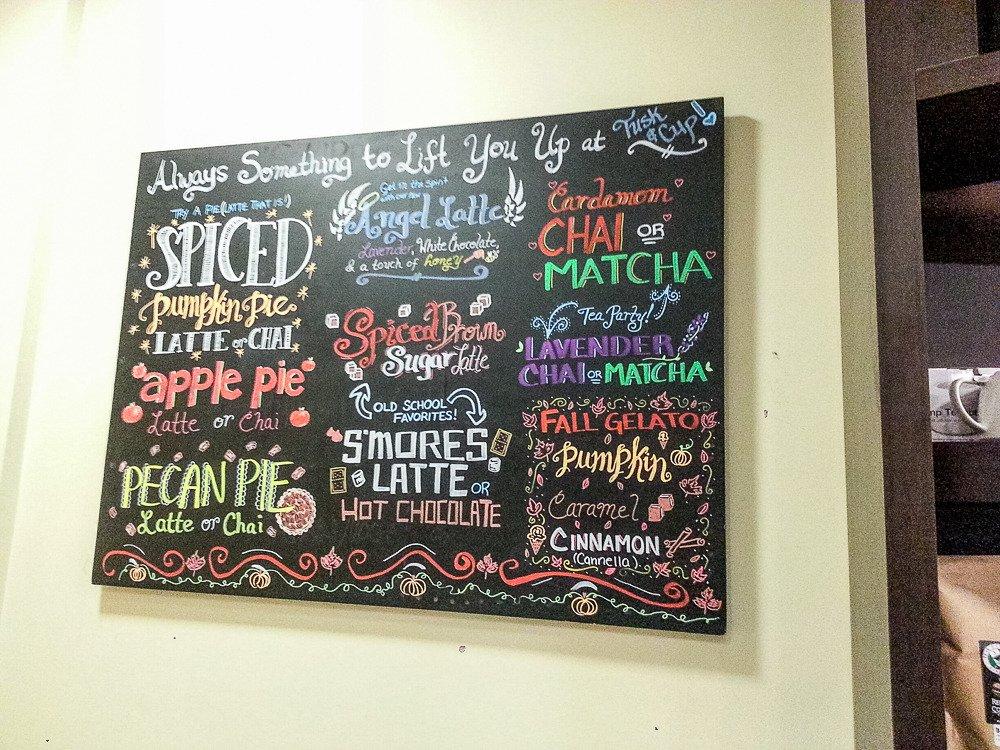 Always Something to Lift You Up at Tusk & Cup!
TRY A PIE (LATTE THAT IS!)
SPICED
pumpkin pie
LATTE or CHAI
apple pie
Latte or Chai
PECAN PIE
Latte or Chai
Get in the Spirit
with our new
Angel Latte
Lavender, White Chocolate,
& a touch of honey
Spiced Brown
Sugar Latte
OLD SCHOOL
FAVORITES!
S'MORES
LATTE OR
HOT CHOCOLATE
Cardamom
CHAI OR
MATCHA
Tea Party!
LAVENDER
CHAI OR MATCHA
FALL GELATO
Pumpkin
Caramel
CINNAMON
(Cannella)